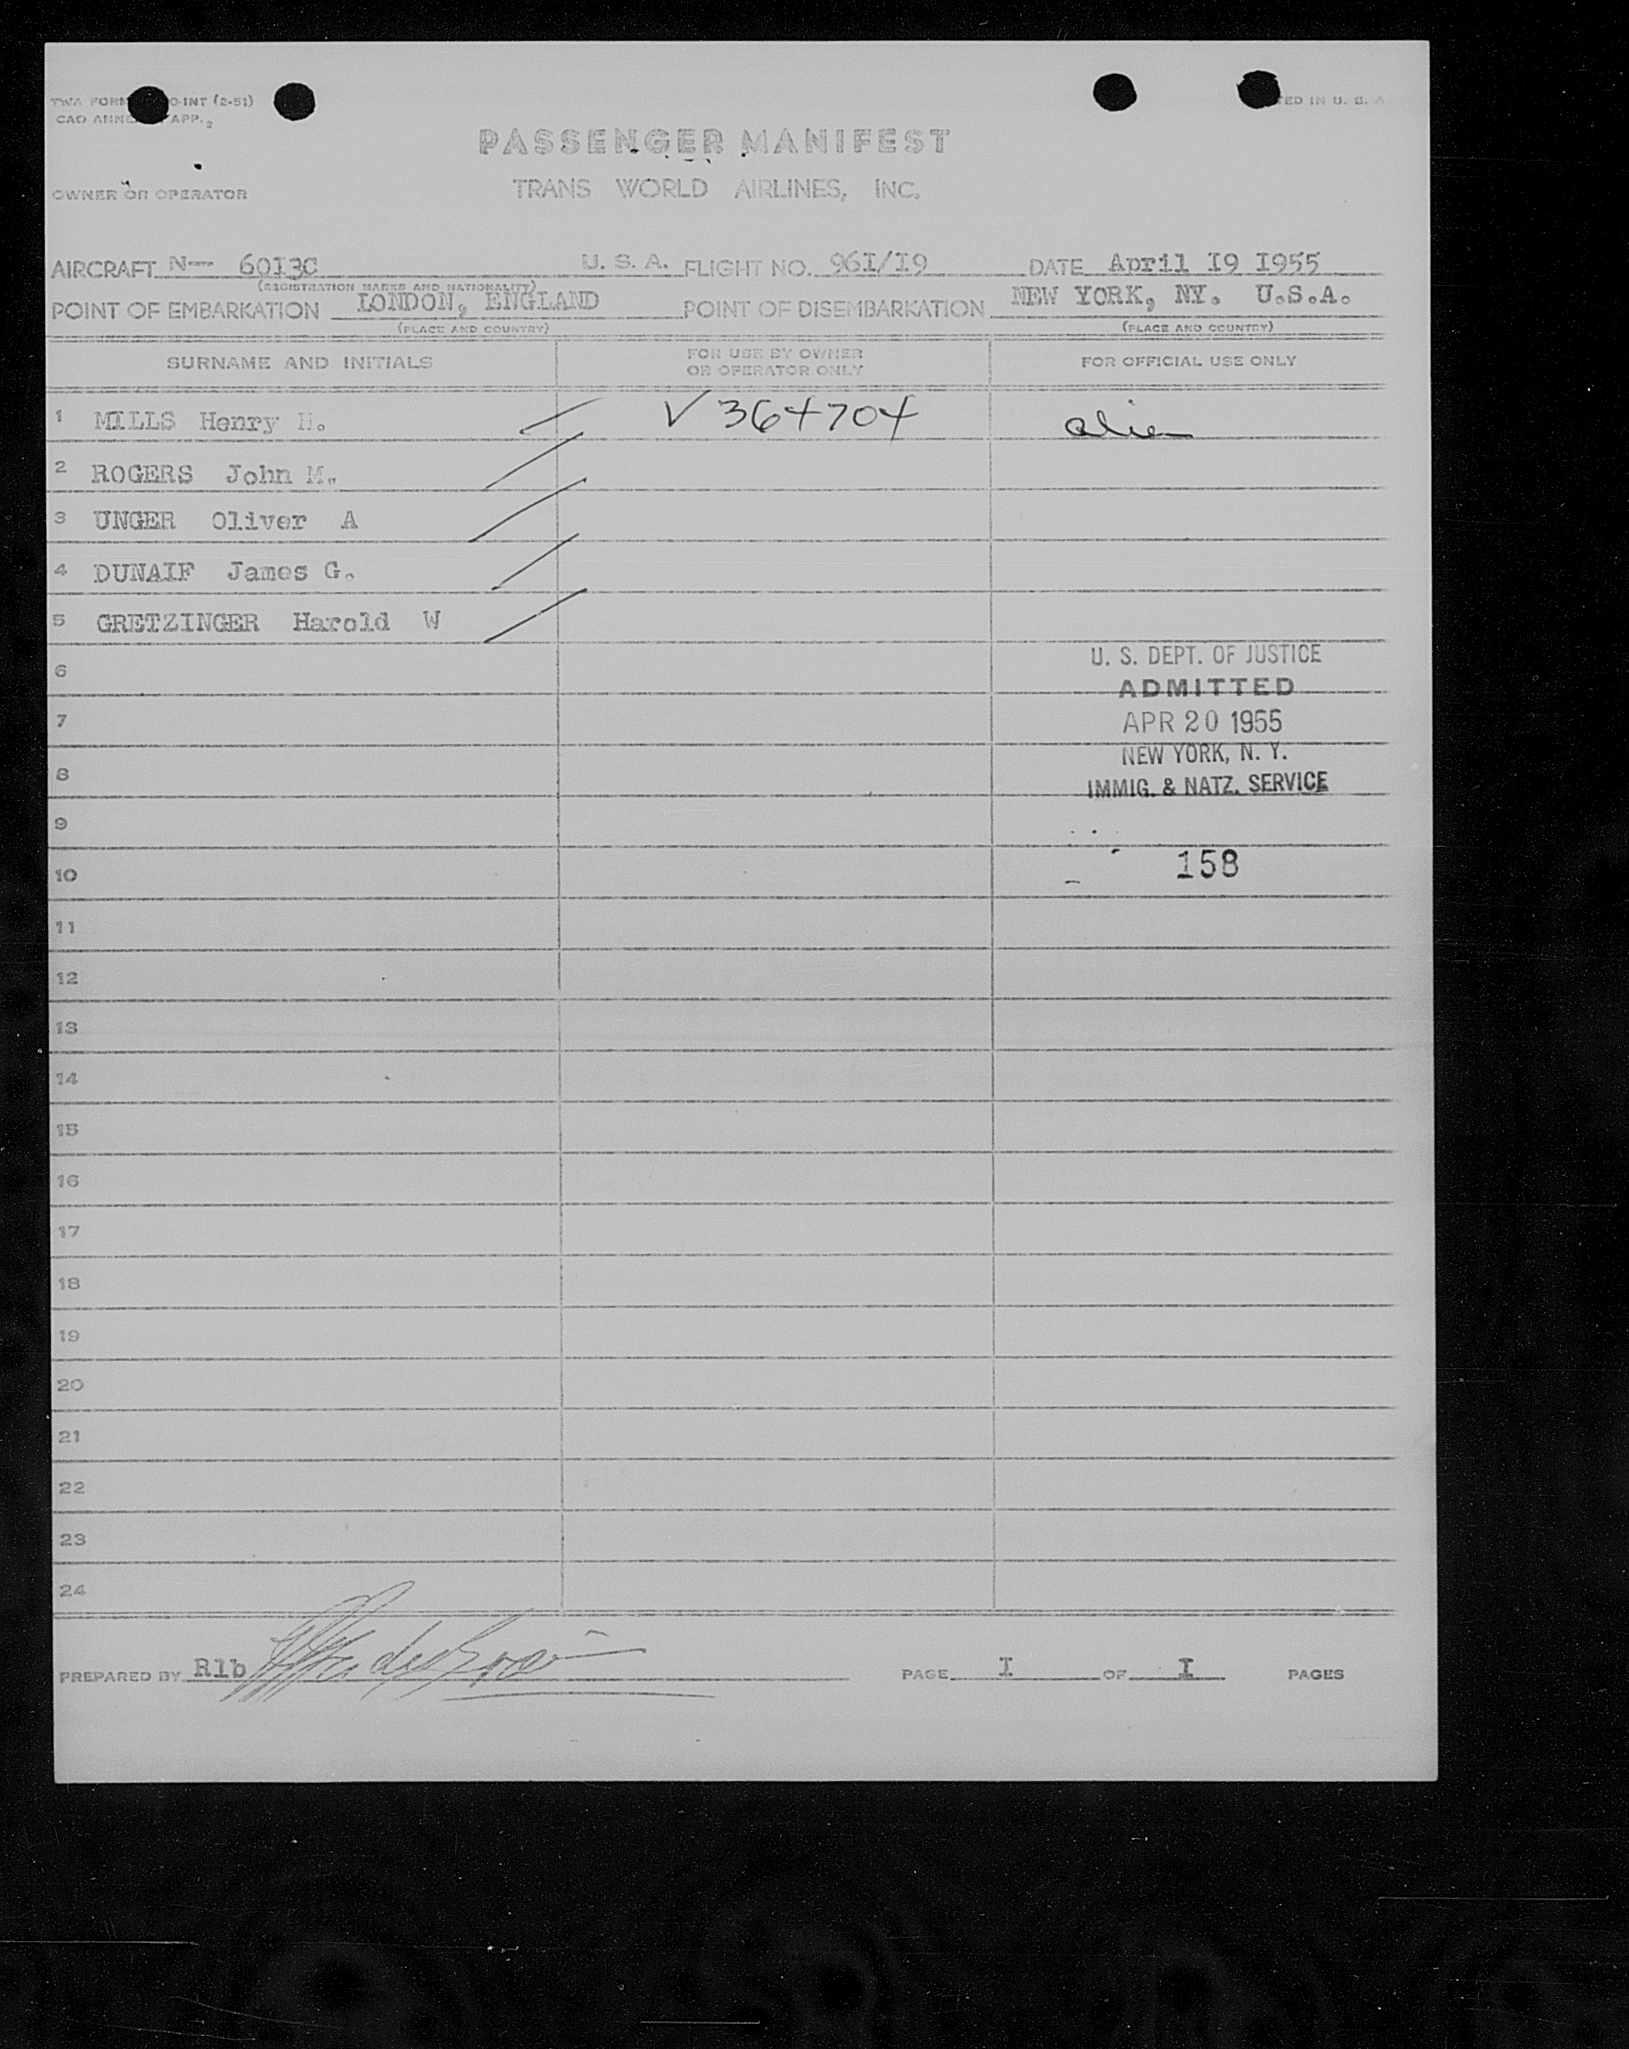 TWA FORM O-INT (2-51)
TED IN U. S. A
CAO ANNE APP. 2
PASSENGER MANIFEST
OWNER OR OPERATOR TRANS WORLD AIRLINES, INC.
AIRCRAFT N-- 60I3C U. S. A. FLIGHT NO. 96I/I9 DATE April I9 I955
(REGISTRATION MARKS AND NATIONALITY)
POINT OF EMBARKATION LONDON, ENGLAND POINT OF DISEMBARKATION NEW YORK, NY. U.S.A.
(PLACE AND COUNTRY) (PLACE AND COUNTRY)
SURNAME AND INITIALS FOR USE BY OWNER OR OPERATOR ONLY FOR OFFICIAL USE ONLY
1 MILLS Henry H. V 364704 alien
2 ROGERS John M.
3 UNGER Oliver A
4 DUNAIF James G.
5 GRETZINGER Harold W
U. S. DEPT. OF JUSTICE
6
ADMITTED
7 APR 20 1955
NEW YORK, N. Y.
8
IMMIG. & NATZ. SERVICE
9
10 158
11
12
13
14
15
16
17
18
19
20
21
22
23
24
PREPARED BY Rlb PAGE I OF I PAGES